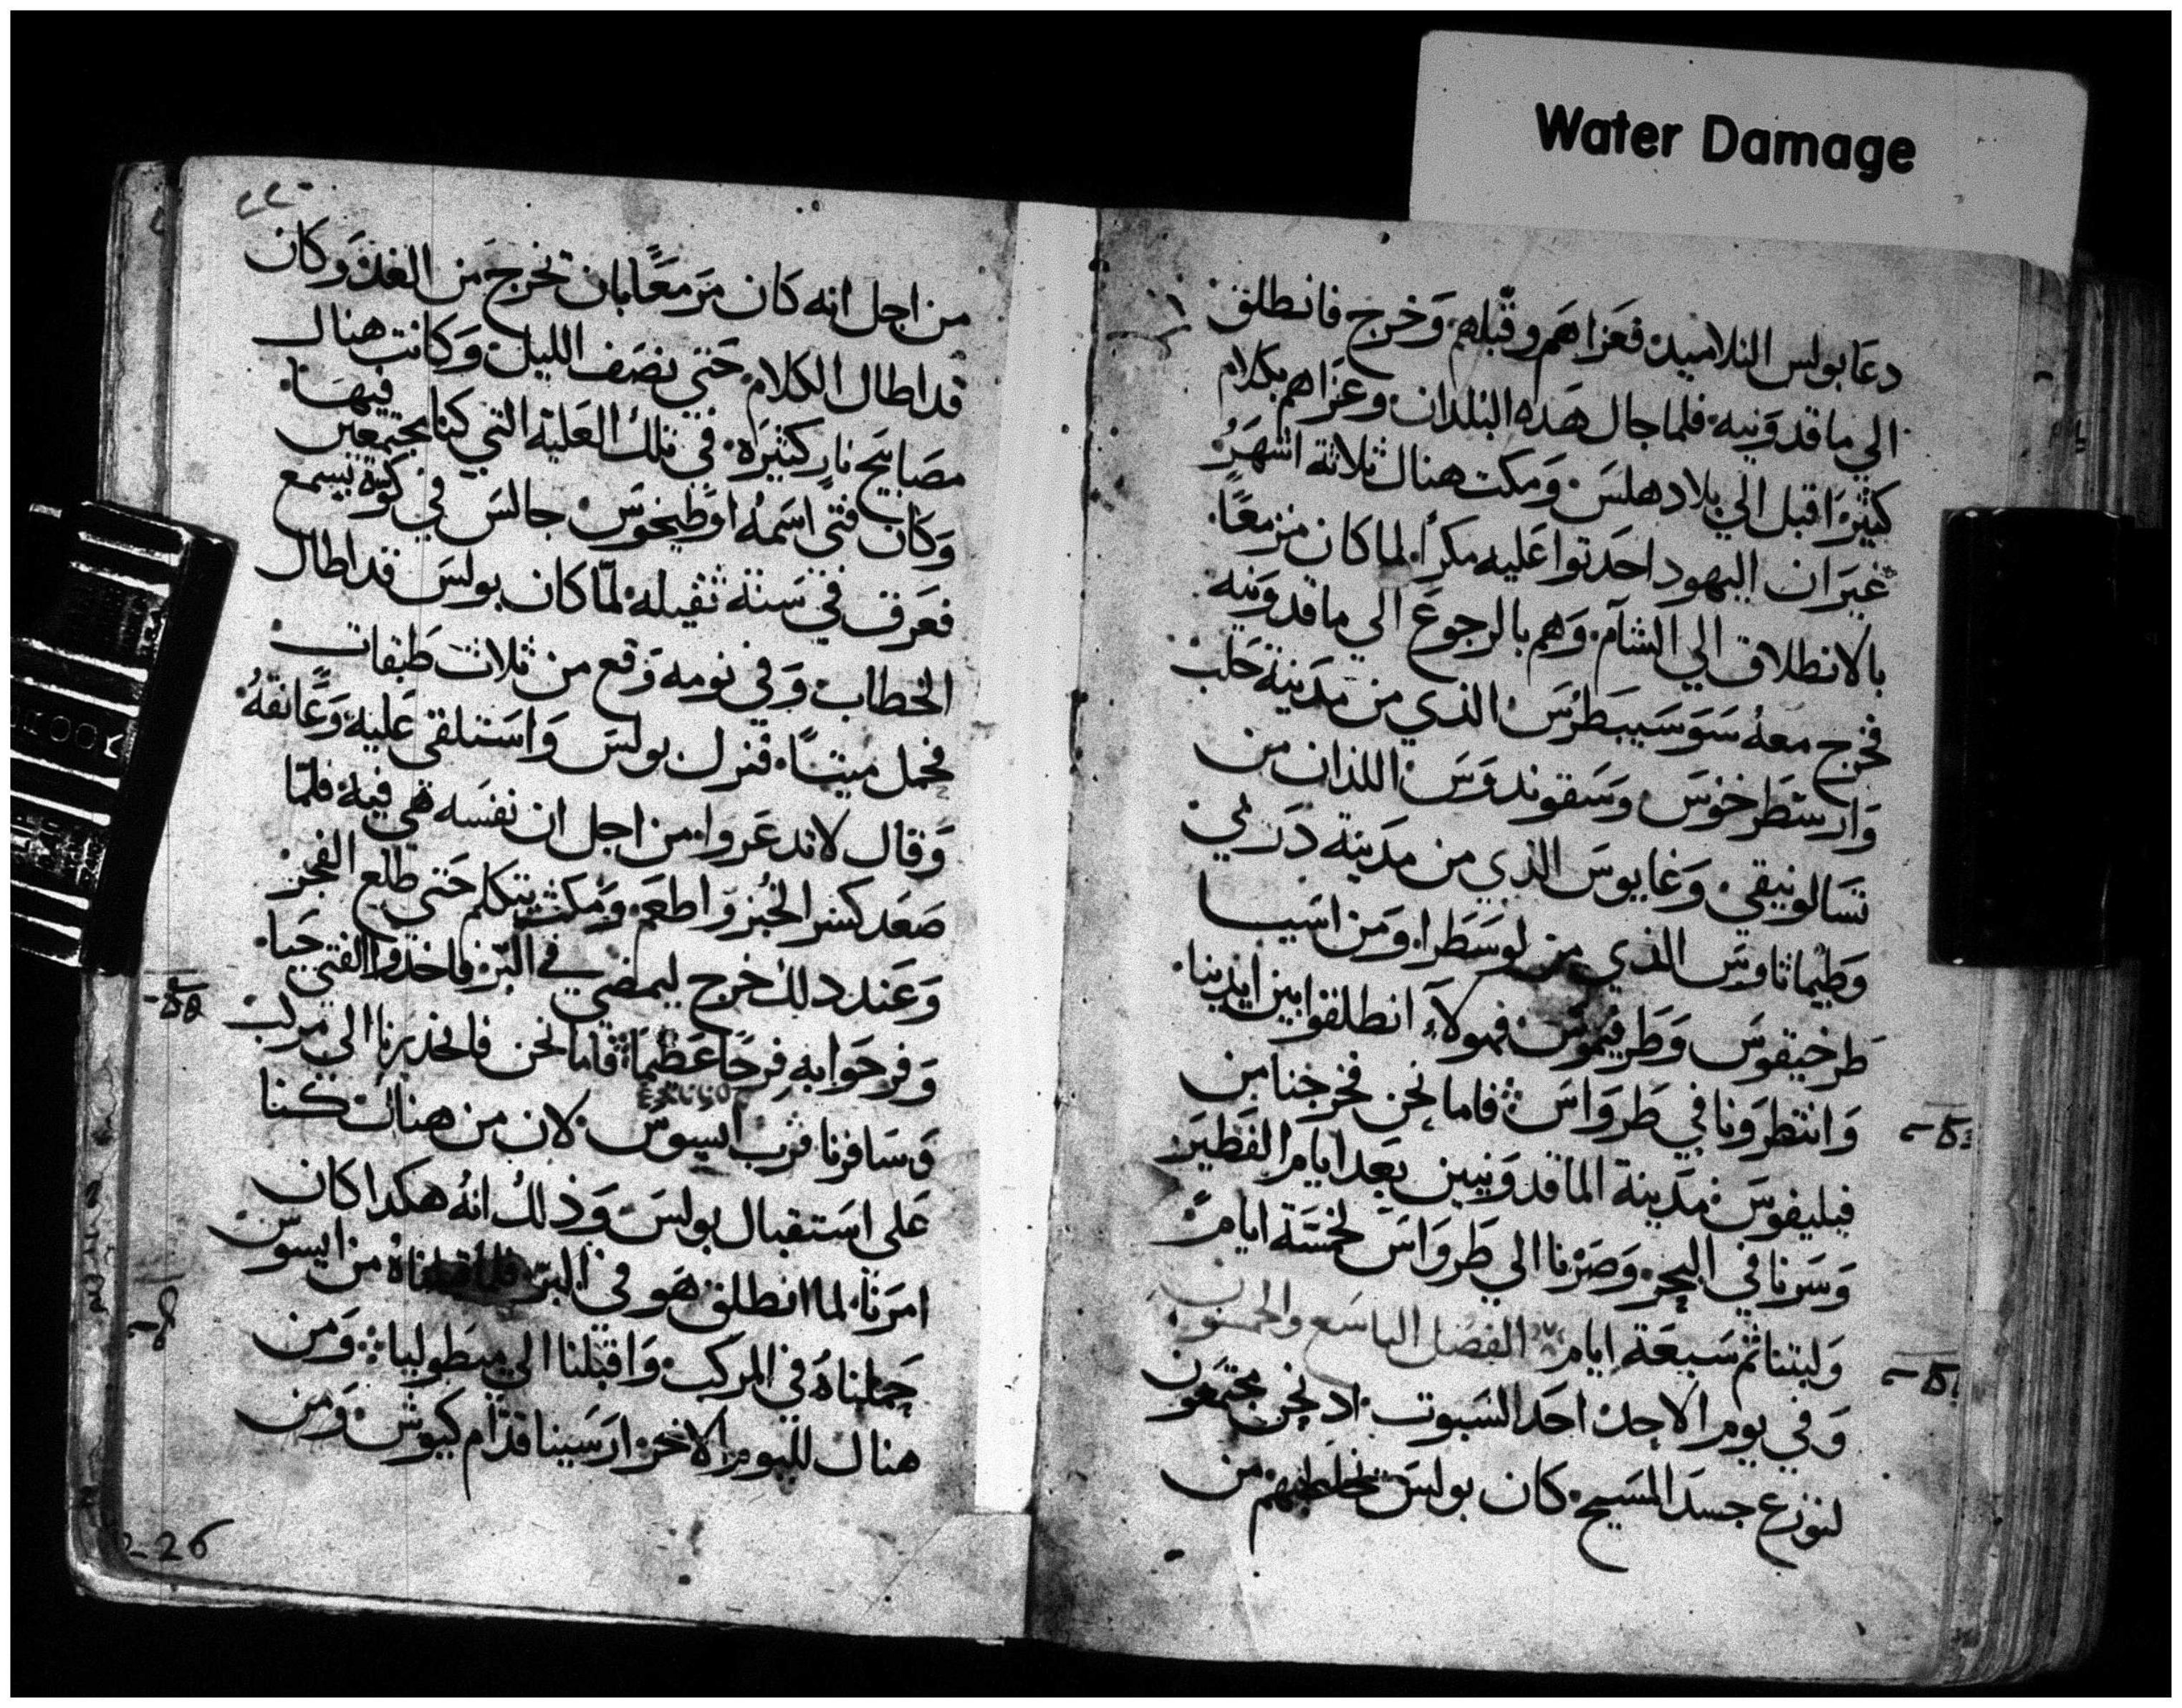 Water Damage
دعَا بولس التلاميد فعَزاهَم وقبّلهم وَخرج فانطلق
الي ماقدوَنيه فلما جال هَده البلدان وعَزاهم بكلام
كثيرَ اقبل الي بلاد هلسَ وَمكت هناك ثلاثة اشهَرُ
غيرَ ان اليهود احَدتوا عَليه مكرًا لما كان مزمعًا
بالانطلاق الي الشآم وَهم بالرجوعَ الي ماقدوَنيه
فخرج معهُ سَوسَيبَطرُسَ الذي من مدَينة حَلب
وَارسَطَرخوسَ وسَقوندوَسَ اللذان من
تسَالونيقي وَغايوسَ الذي من مدَينة دَربي
وَطيَماثاوسَ الذي من لوسَطرا وَمن اسَيا
طرَخيقوسَ وَطَرفيموسَ فهولآء انطلقوا بين ايَدينا
وَانتظروَنا في طَروَاسَ فاما نحن فخرجَنا من
فيليفوسَ مدَينة الماقدوَنيين بعَد ايام الفَطيرَ
وَسَرنا في البحر وَصَرنا الي طَروَاسَ لخمسَة ايامُ
وَلبتنا ثم سَبعَة ايام الفصَل التاسَع والخمسَون
وَفي يوم الاحد احَد السَبوت اد نحن مجتمعَون
لنوزع جسَد المسَيح كان بولسَ يخاطبهم من
من اجل انه كَان مَزمعًا بان يخرج مَن الغد وَكان
قد اطال الكلام حَتي نصَف الليل وَكانت هناك
مصَابيح نارٍ كثيرَه في تلك العَليه التي كنا مجتمعَين
فيهَا
وَكان فتي اسَمهُ اوَطيخوسَ جالسَ في كوّة يسمع
فعَرق في سَنة ثقيله لمّا كان بولسَ قد اطال
الخطاب وَفي نومه وَقع من ثلاث طَبقات
فحمل ميتًا فنزل بولسَ وَاسَتلقي عَليه وَعَانقهُ
وَقال لا تدعَروا من اجل ان نفسَه هَي فيه فلمّا
صَعَد كسَر الخُبز وَاطعَم وَمكث يتكلم حَتي طلع الفجر
وَعَند دلك خرج ليمضي في البّر فاخدوا الفتي حَيا
وَفرحَوا به فرحًا عَظَيمًا فاما نحن فانحَدرنا الي مركب
وَسَافرنا قرب ايسوسَ لان من هناك كنا
عَلي اسَتقبال بولسَ وَذلك انهُ هكدا كان
امرَنا لما انطلق هَو في البرّ فلما قبلناهُ من ايسوسَ
حَملناهُ في المركب وَاقبلنا الي ميطوليا وَمن
هناك لليوم الاخر ارسَينا قدّام كيوسَ وَمن
226